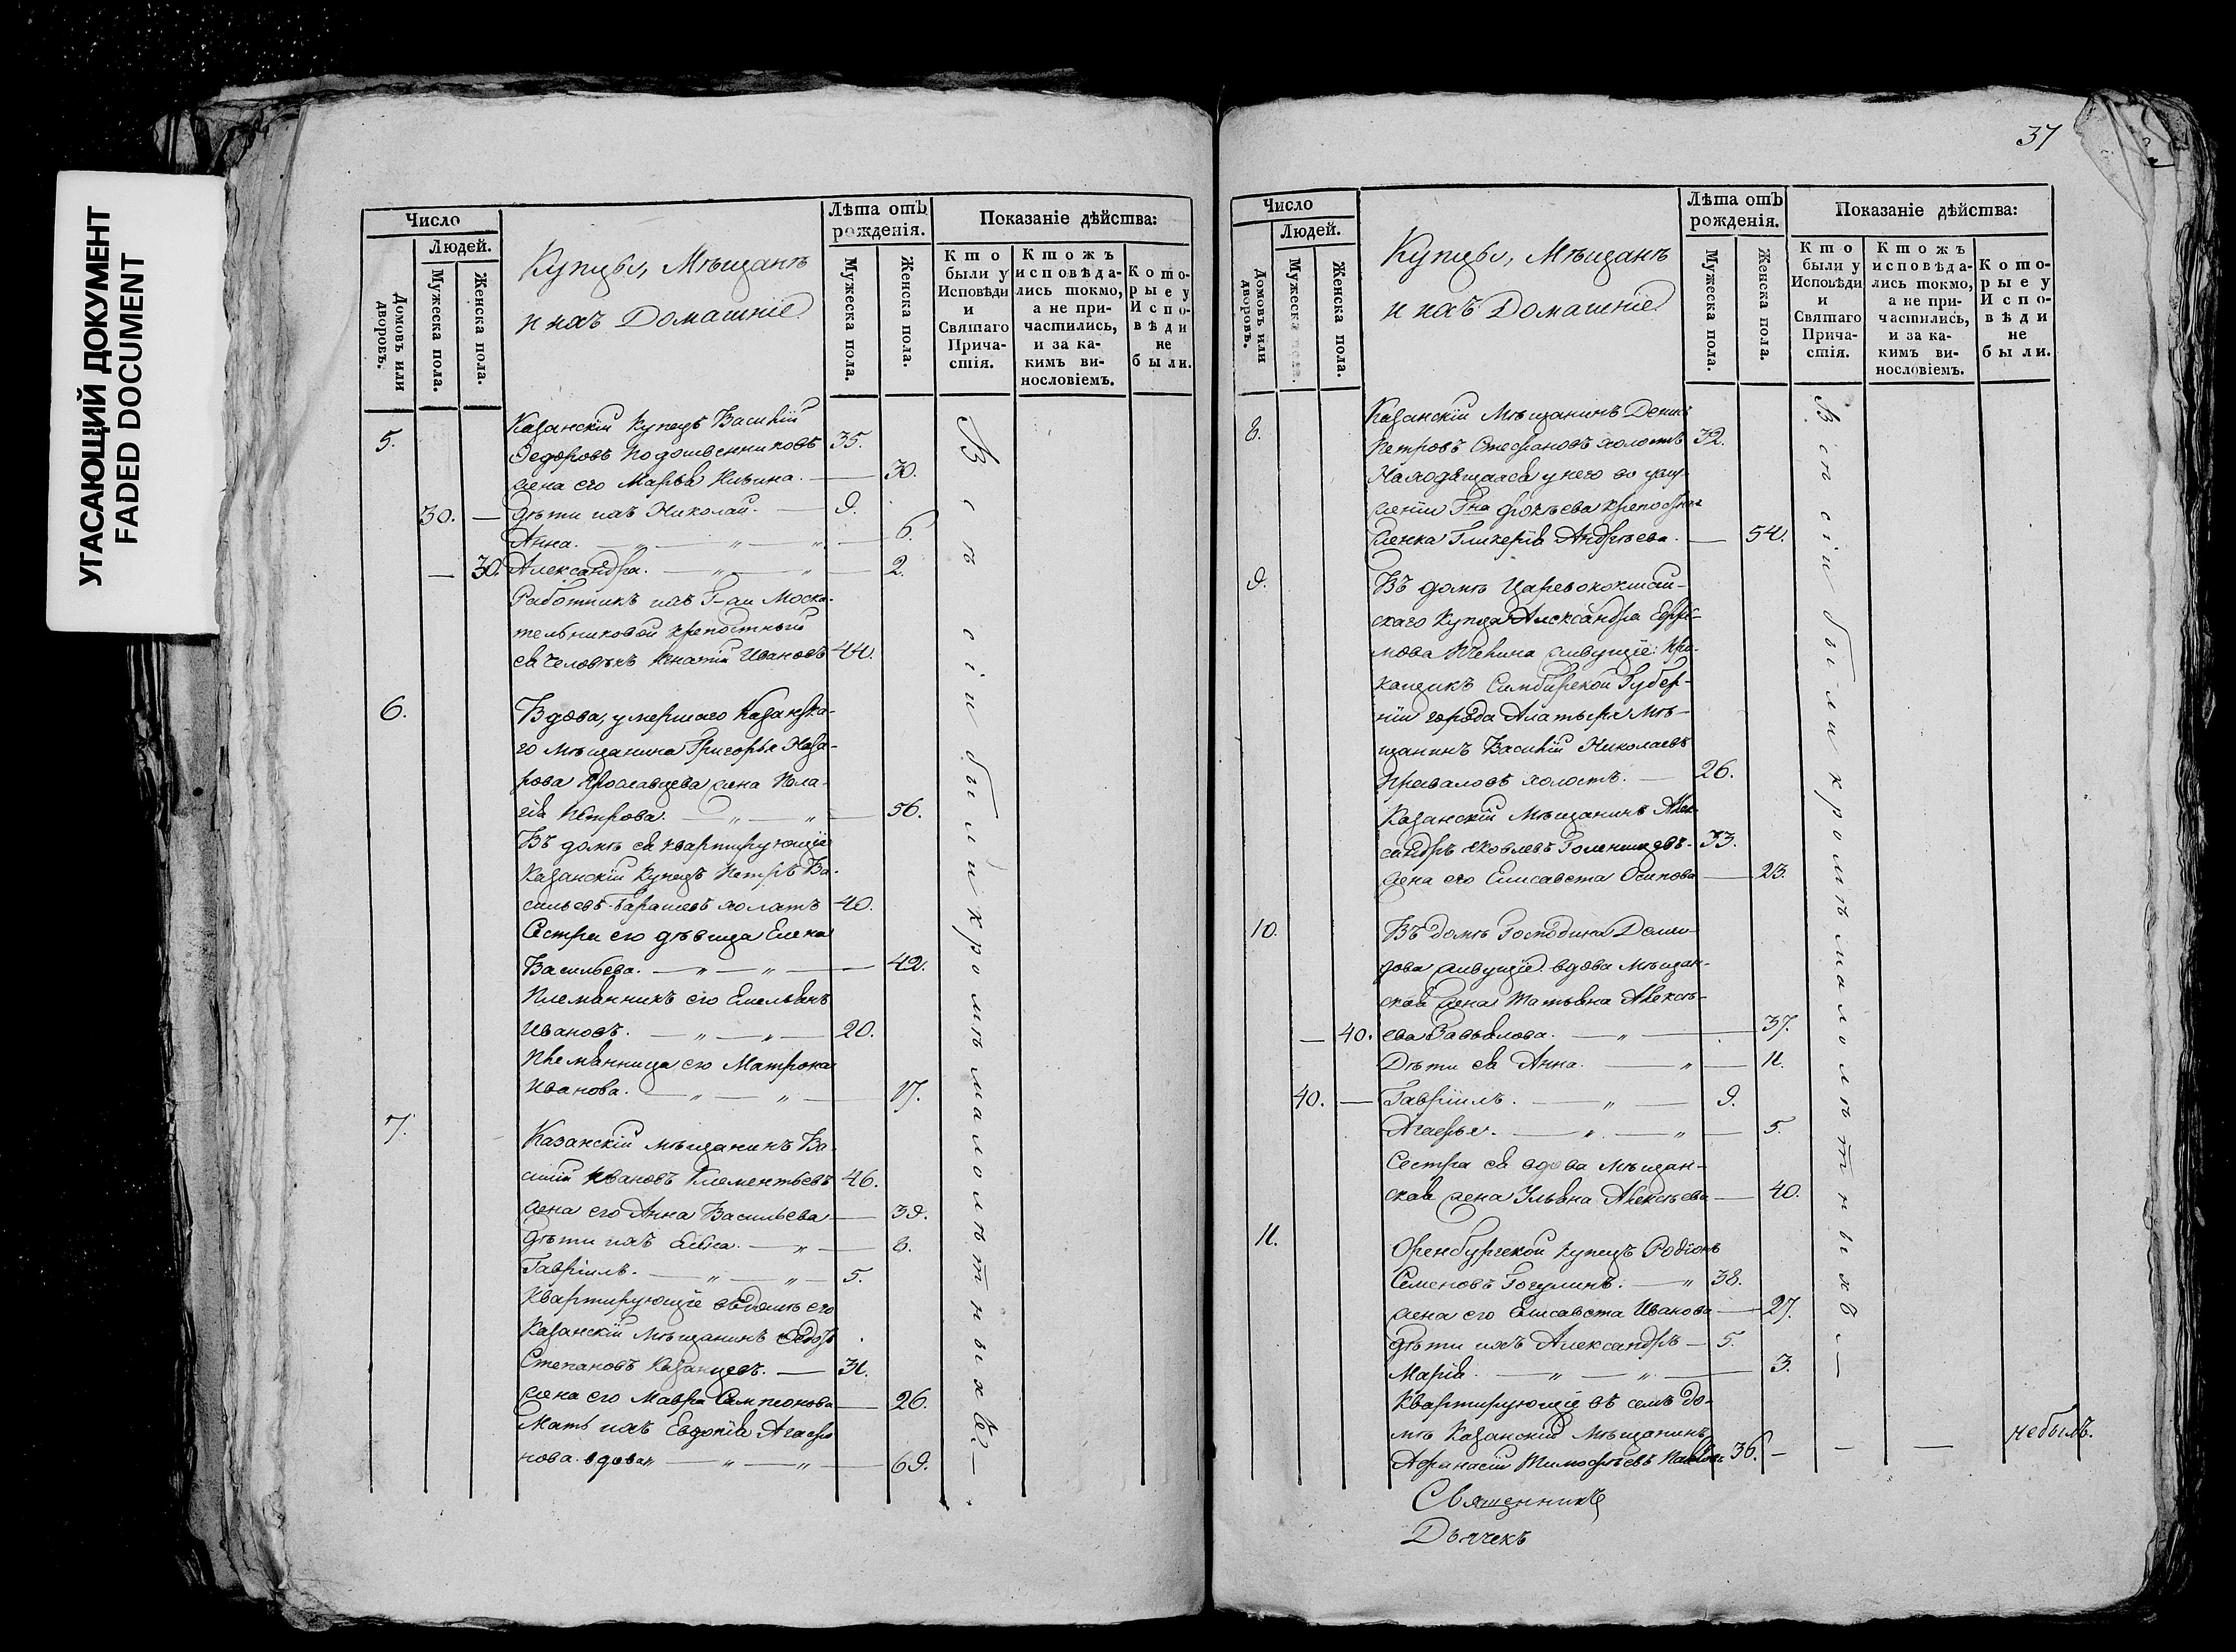 УГАСАЮЩИЙ ДОКУМЕНТ
FADED DOCUMENT
Число
Людей.
Домовъ или дворовъ.
Мужеска пола.
Женска пола.
Купцы, Мѣщанъ
и ихъ Домашніе
Лѣта отъ рожденія.
Мужеска пола.
Женска пола.
Показаніе дѣйства:
Кто были у Исповѣди и Святаго Прича-стія.
Ктожъ исповѣда-лись токмо, а не при-частились, и за ка-кимъ ви-нословіемъ.
Кото-рые у Испо-вѣди не были.
5. Казанскій Купецъ Василій
Ѳедоровъ Подошвенниковъ 35.
жена его Марья Ильина. — 30.
30. — Дѣти ихъ Николай. — 9.
Анна. — „ — „ — 6.
— 30. Александра. — „ — „ — 2.
Работникъ ихъ Г-жи Моска-
тельниковой крѣпостный
ея человѣкъ Игнатій Ивановъ 44.
6. Вдова, умершаго Казанска-
го мѣщанина Григорья Наза-
рова Ярославцева жена Пела-
гія Петрова. — „ — „ — 56.
Въ домѣ ея квартирующіе
Казанскій Купецъ Петръ Ва-
сильевъ Барашевъ холостъ 40.
Сестра его дѣвица Елена
Васильева. — „ — „ — 42.
Племянникъ его Емельянъ
Ивановъ. — „ — „ — 20.
Племянница его Матрона
Иванова. — „ — „ — 17.
7. Казанскій мѣщанинъ Ва-
силій Ивановъ Клементьевъ 46.
жена его Анна Васильева — 39.
дѣти ихъ Елена. — „ — 8.
Гавріилъ. — „ — „ — 5.
Квартирующіе въ домѣ его
Казанскій мѣщанинъ Ѳедоръ
Степановъ Казанцевъ. — 31.
жена его Мавра Сампсонова — 26.
Мать ихъ Евдокія Агаѳо
нова вдова „ — „ — „ — 69.
Всѣ сіи были кромѣ малолѣтныхъ. —
37
Число
Людей.
Домовъ или дворовъ.
Мужеска пола.
Женска пола.
Купцы, Мѣщанъ
и ихъ Домашніе
Лѣта отъ рожденія.
Мужеска пола.
Женска пола.
Показаніе дѣйства:
Кто были у Исповѣди и Святаго Прича-стія.
Ктожъ исповѣда-лись токмо, а не при-частились, и за ка-кимъ ви-нословіемъ.
Кото-рые у Испо-вѣди не были.
8. Казанскій Мѣщанинъ Денисъ
Петровъ Стефановъ холостъ 32.
Находящаяся у него во услу-
женіи Г-на крепостная
женка Гликерія Андрѣева. — 54.
9. Въ домѣ Царевококшай-
скаго Купца Александра Ефрѣ-
мова Пчелина живущіе: При-
кащикъ Симбирской Губер-
ніи города Алатыря Мѣ-
щанинъ Василій Николаевъ
Приваловъ холостъ. — 26.
Казанскій Мѣщанинъ Алек-
сандръ Яковлевъ Голенищевъ. 33.
жена его Елисавета Осипова — 23.
10. Въ домѣ Господина
живущіе вдова мѣщан-
ская жена Татьяна Алексѣ-
— 40. ева Завьялова. — „ — 37.
Дѣти ея Анна. — „ — 11.
40. — Гавріилъ. — „ — 9.
Агаѳья. — „ — „ — 5.
Сестра ея вдова мѣщан-
ская жена Ульяна Алексѣева — 40.
11. Оренбургской Купецъ Родіонъ
Семеновъ Гогулинъ. — „ 38.
жена его Елисавета Иванова — 27.
дѣти ихъ Александръ — 5.
Марія. — „ — „ — 3.
Квартирующіе въ семъ до-
мѣ Казанскій Мѣщанинъ
Афанасій Тимофѣевъ 36. — — — небылъ.
Всѣ сіи были кромѣ малолѣтныхъ. —
Священникъ
Дьячекъ